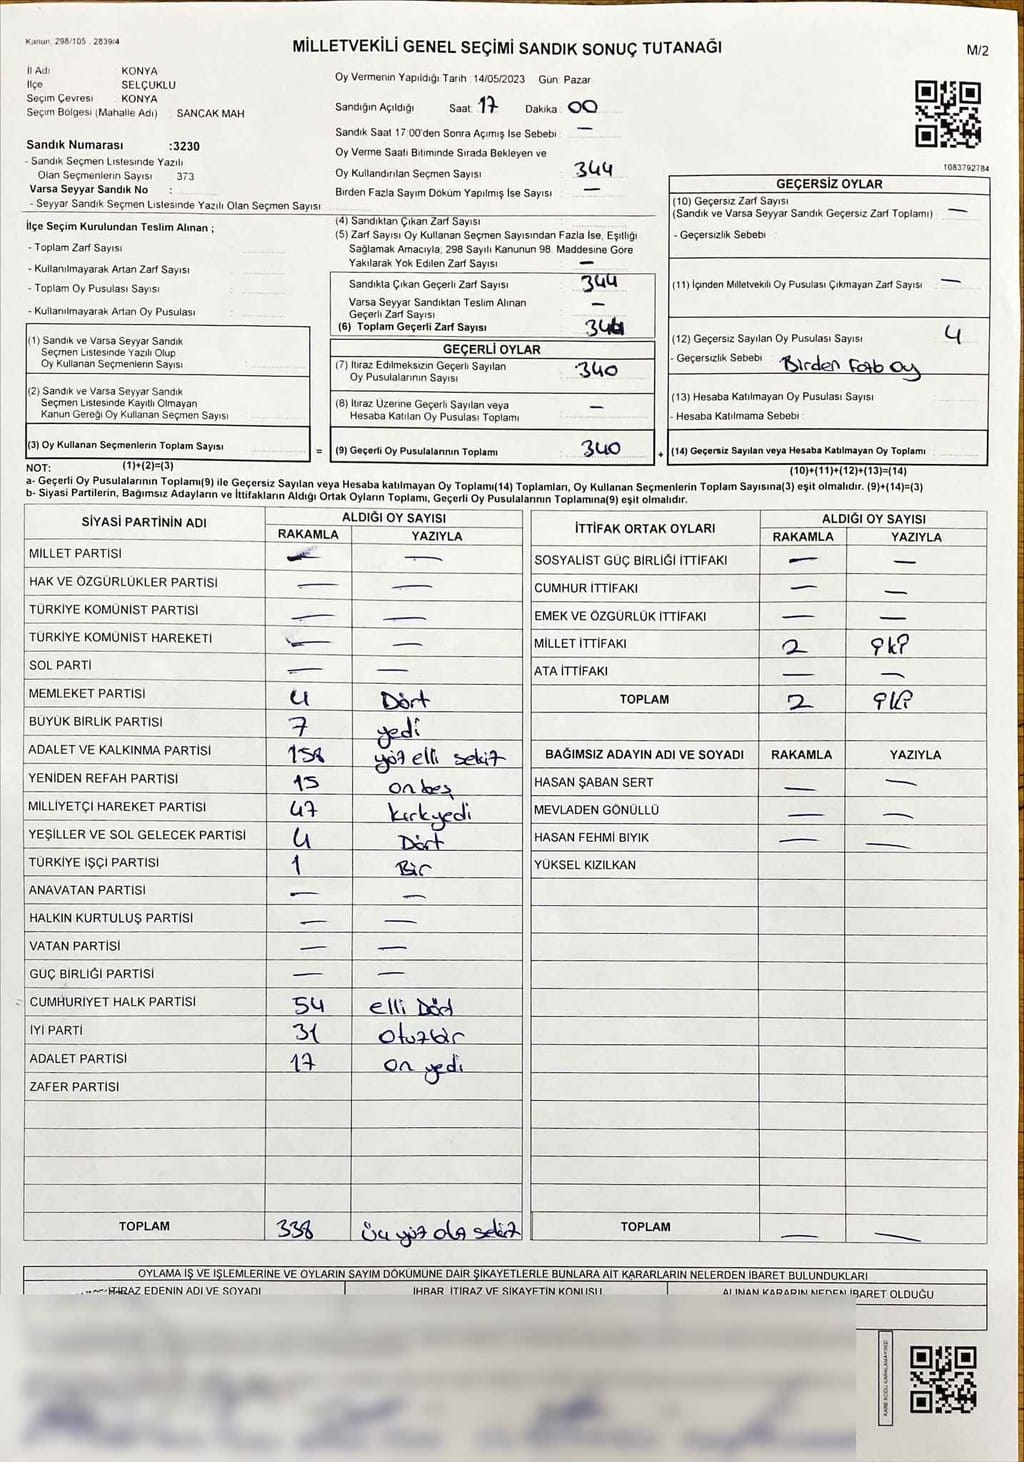 Kanun, 298/105 , 2839/4
MİLLETVEKİLİ GENEL SEÇİMİ SANDIK SONUÇ TUTANAĞI
M/2
İl Adı KONYA
İlçe SELÇUKLU
Seçim Çevresi KONYA
Seçim Bölgesi (Mahalle Adı) SANCAK MAH
Sandık Numarası :3230
- Sandık Seçmen Listesinde Yazılı
Olan Seçmenlerin Sayısı 373
Varsa Seyyar Sandık No :
- Seyyar Sandık Seçmen Listesinde Yazılı Olan Seçmen Sayısı
İlçe Seçim Kurulundan Teslim Alınan ;
- Toplam Zarf Sayısı :
- Kullanılmayarak Artan Zarf Sayısı :
- Toplam Oy Pusulası Sayısı :
- Kullanılmayarak Artan Oy Pusulası :
(1) Sandık ve Varsa Seyyar Sandık
Seçmen Listesinde Yazılı Olup
Oy Kullanan Seçmenlerin Sayısı :
(2) Sandık ve Varsa Seyyar Sandık
Seçmen Listesinde Kayıtlı Olmayan
Kanun Gereği Oy Kullanan Seçmen Sayısı :
(3) Oy Kullanan Seçmenlerin Toplam Sayısı
Oy Vermenin Yapıldığı Tarih :14/05/2023 Gün: Pazar
Sandığın Açıldığı Saat: 17 Dakika: 00
Sandık Saat 17:00'den Sonra Açımış İse Sebebi : —
Oy Verme Saati Bitiminde Sırada Bekleyen ve
Oy Kullandırılan Seçmen Sayısı : 344
Birden Fazla Sayım Döküm Yapılmış İse Sayısı : —
(4) Sandıktan Çıkan Zarf Sayısı :
(5) Zarf Sayısı Oy Kullanan Seçmen Sayısından Fazla İse, Eşitliği
Sağlamak Amacıyla, 298 Sayılı Kanunun 98. Maddesine Göre
Yakılarak Yok Edilen Zarf Sayısı : —
Sandıkta Çıkan Geçerli Zarf Sayısı : 344
Varsa Seyyar Sandıktan Teslim Alınan
Geçerli Zarf Sayısı : —
(6) Toplam Geçerli Zarf Sayısı : 344
GEÇERLİ OYLAR
(7) İtiraz Edilmeksizin Geçerli Sayılan
Oy Pusulalarının Sayısı : 340
(8) İtiraz Üzerine Geçerli Sayılan veya
Hesaba Katılan Oy Pusulası Toplamı : —
= (9) Geçerli Oy Pusulalarının Toplamı : 340
1083792784
GEÇERSİZ OYLAR
(10) Geçersiz Zarf Sayısı
(Sandık ve Varsa Seyyar Sandık Geçersiz Zarf Toplamı) : —
- Geçersizlik Sebebi :
(11) İçinden Milletvekili Oy Pusulası Çıkmayan Zarf Sayısı : —
(12) Geçersiz Sayılan Oy Pusulası Sayısı : 4
- Geçersizlik Sebebi : Birden Fazla Oy
(13) Hesaba Katılmayan Oy Pusulası Sayısı :
- Hesaba Katılmama Sebebi :
+ (14) Geçersiz Sayılan veya Hesaba Katılmayan Oy Toplamı :
NOT: (1)+(2)=(3) (10)+(11)+(12)+(13)=(14)
a- Geçerli Oy Pusulalarının Toplamı(9) ile Geçersiz Sayılan veya Hesaba katılmayan Oy Toplamı(14) Toplamları, Oy Kullanan Seçmenlerin Toplam Sayısına(3) eşit olmalıdır. (9)+(14)=(3)
b- Siyasi Partilerin, Bağımsız Adayların ve İttifakların Aldığı Ortak Oyların Toplamı, Geçerli Oy Pusulalarının Toplamına(9) eşit olmalıdır.
SİYASİ PARTİNİN ADI ALDIĞI OY SAYISI
RAKAMLA YAZIYLA
MİLLET PARTİSİ — —
HAK VE ÖZGÜRLÜKLER PARTİSİ — —
TÜRKİYE KOMÜNİST PARTİSİ — —
TÜRKİYE KOMÜNİST HAREKETİ — —
SOL PARTİ — —
MEMLEKET PARTİSİ 4 Dört
BÜYÜK BİRLİK PARTİSİ 7 yedi
ADALET VE KALKINMA PARTİSİ 158 yüz elli sekiz
YENİDEN REFAH PARTİSİ 15 onbeş
MİLLİYETÇİ HAREKET PARTİSİ 47 kırkyedi
YEŞİLLER VE SOL GELECEK PARTİSİ 4 Dört
TÜRKİYE İŞÇİ PARTİSİ 1 Bir
ANAVATAN PARTİSİ — —
HALKIN KURTULUŞ PARTİSİ — —
VATAN PARTİSİ — —
GÜÇ BİRLİĞİ PARTİSİ — —
CUMHURİYET HALK PARTİSİ 54 elli Dört
İYİ PARTİ 31 otuzbir
ADALET PARTİSİ 17 on yedi
ZAFER PARTİSİ
TOPLAM 338 üç yüz otuz sekiz
İTTİFAK ORTAK OYLARI ALDIĞI OY SAYISI
RAKAMLA YAZIYLA
SOSYALİST GÜÇ BİRLİĞİ İTTİFAKI — —
CUMHUR İTTİFAKI — —
EMEK VE ÖZGÜRLÜK İTTİFAKI — —
MİLLET İTTİFAKI 2 iki
ATA İTTİFAKI — —
TOPLAM 2 iki
BAĞIMSIZ ADAYIN ADI VE SOYADI RAKAMLA YAZIYLA
HASAN ŞABAN SERT — —
MEVLADEN GÖNÜLLÜ — —
HASAN FEHMİ BIYIK — —
YÜKSEL KIZILKAN
TOPLAM — —
OYLAMA İŞ VE İŞLEMLERİNE VE OYLARIN SAYIM DÖKÜMÜNE DAİR ŞİKAYETLERLE BUNLARA AİT KARARLARIN NELERDEN İBARET BULUNDUKLARI
İTİRAZ EDENİN ADI VE SOYADI İHBAR, İTİRAZ VE ŞİKAYETİN KONUSU ALINAN KARARIN NEDEN İBARET OLDUĞU
KARE KODU KARALAMAYINIZ!